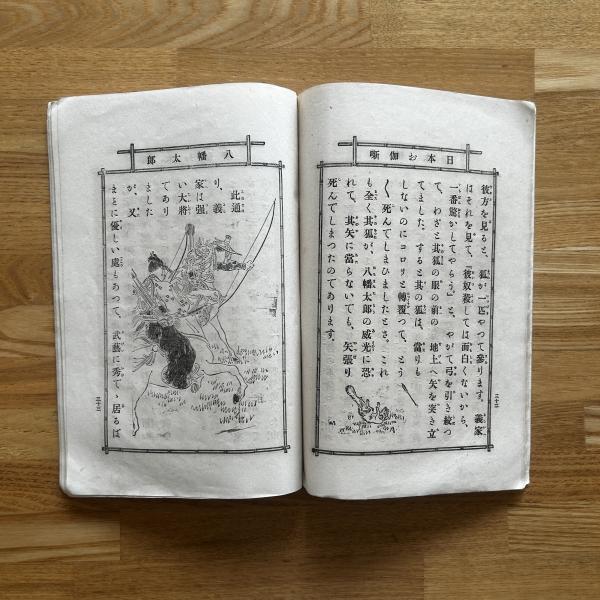 日本お伽噺
彼方を見ると、狐が一匹やつて參ります。義家
はそれを見て、『彼奴殺しては面白くないから、
一番驚かしてやらう』と、やがて弓を引き絞つ
て、わざと其狐の眼の前の地上へ矢を突き立
てました。すると其の狐は、當りも
しないのにコロリと轉覆つて、とう
〱死んでしまひましたとさ。これ
も全く其狐が、八幡太郎の威光に恐
れて、其矢に當らないでも、矢張り
死んでしまつたのであります。
八幡太郎
此通
り、義
家は强
い大將
であり
ました
が、又
まことに優しい處もあつて、武藝に秀でゝ居るば